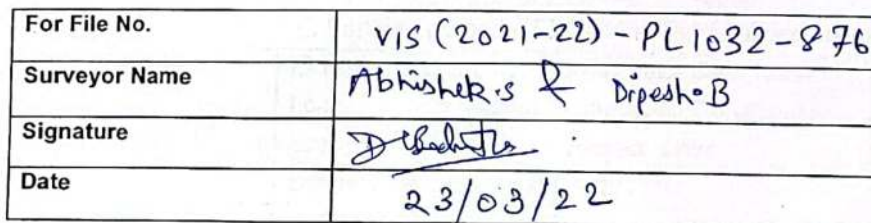 For File No. VIS (2021-22) - PL1032-876
Surveyor Name Abhishek.S & Dipesh.B
Signature
Date 23/03/22